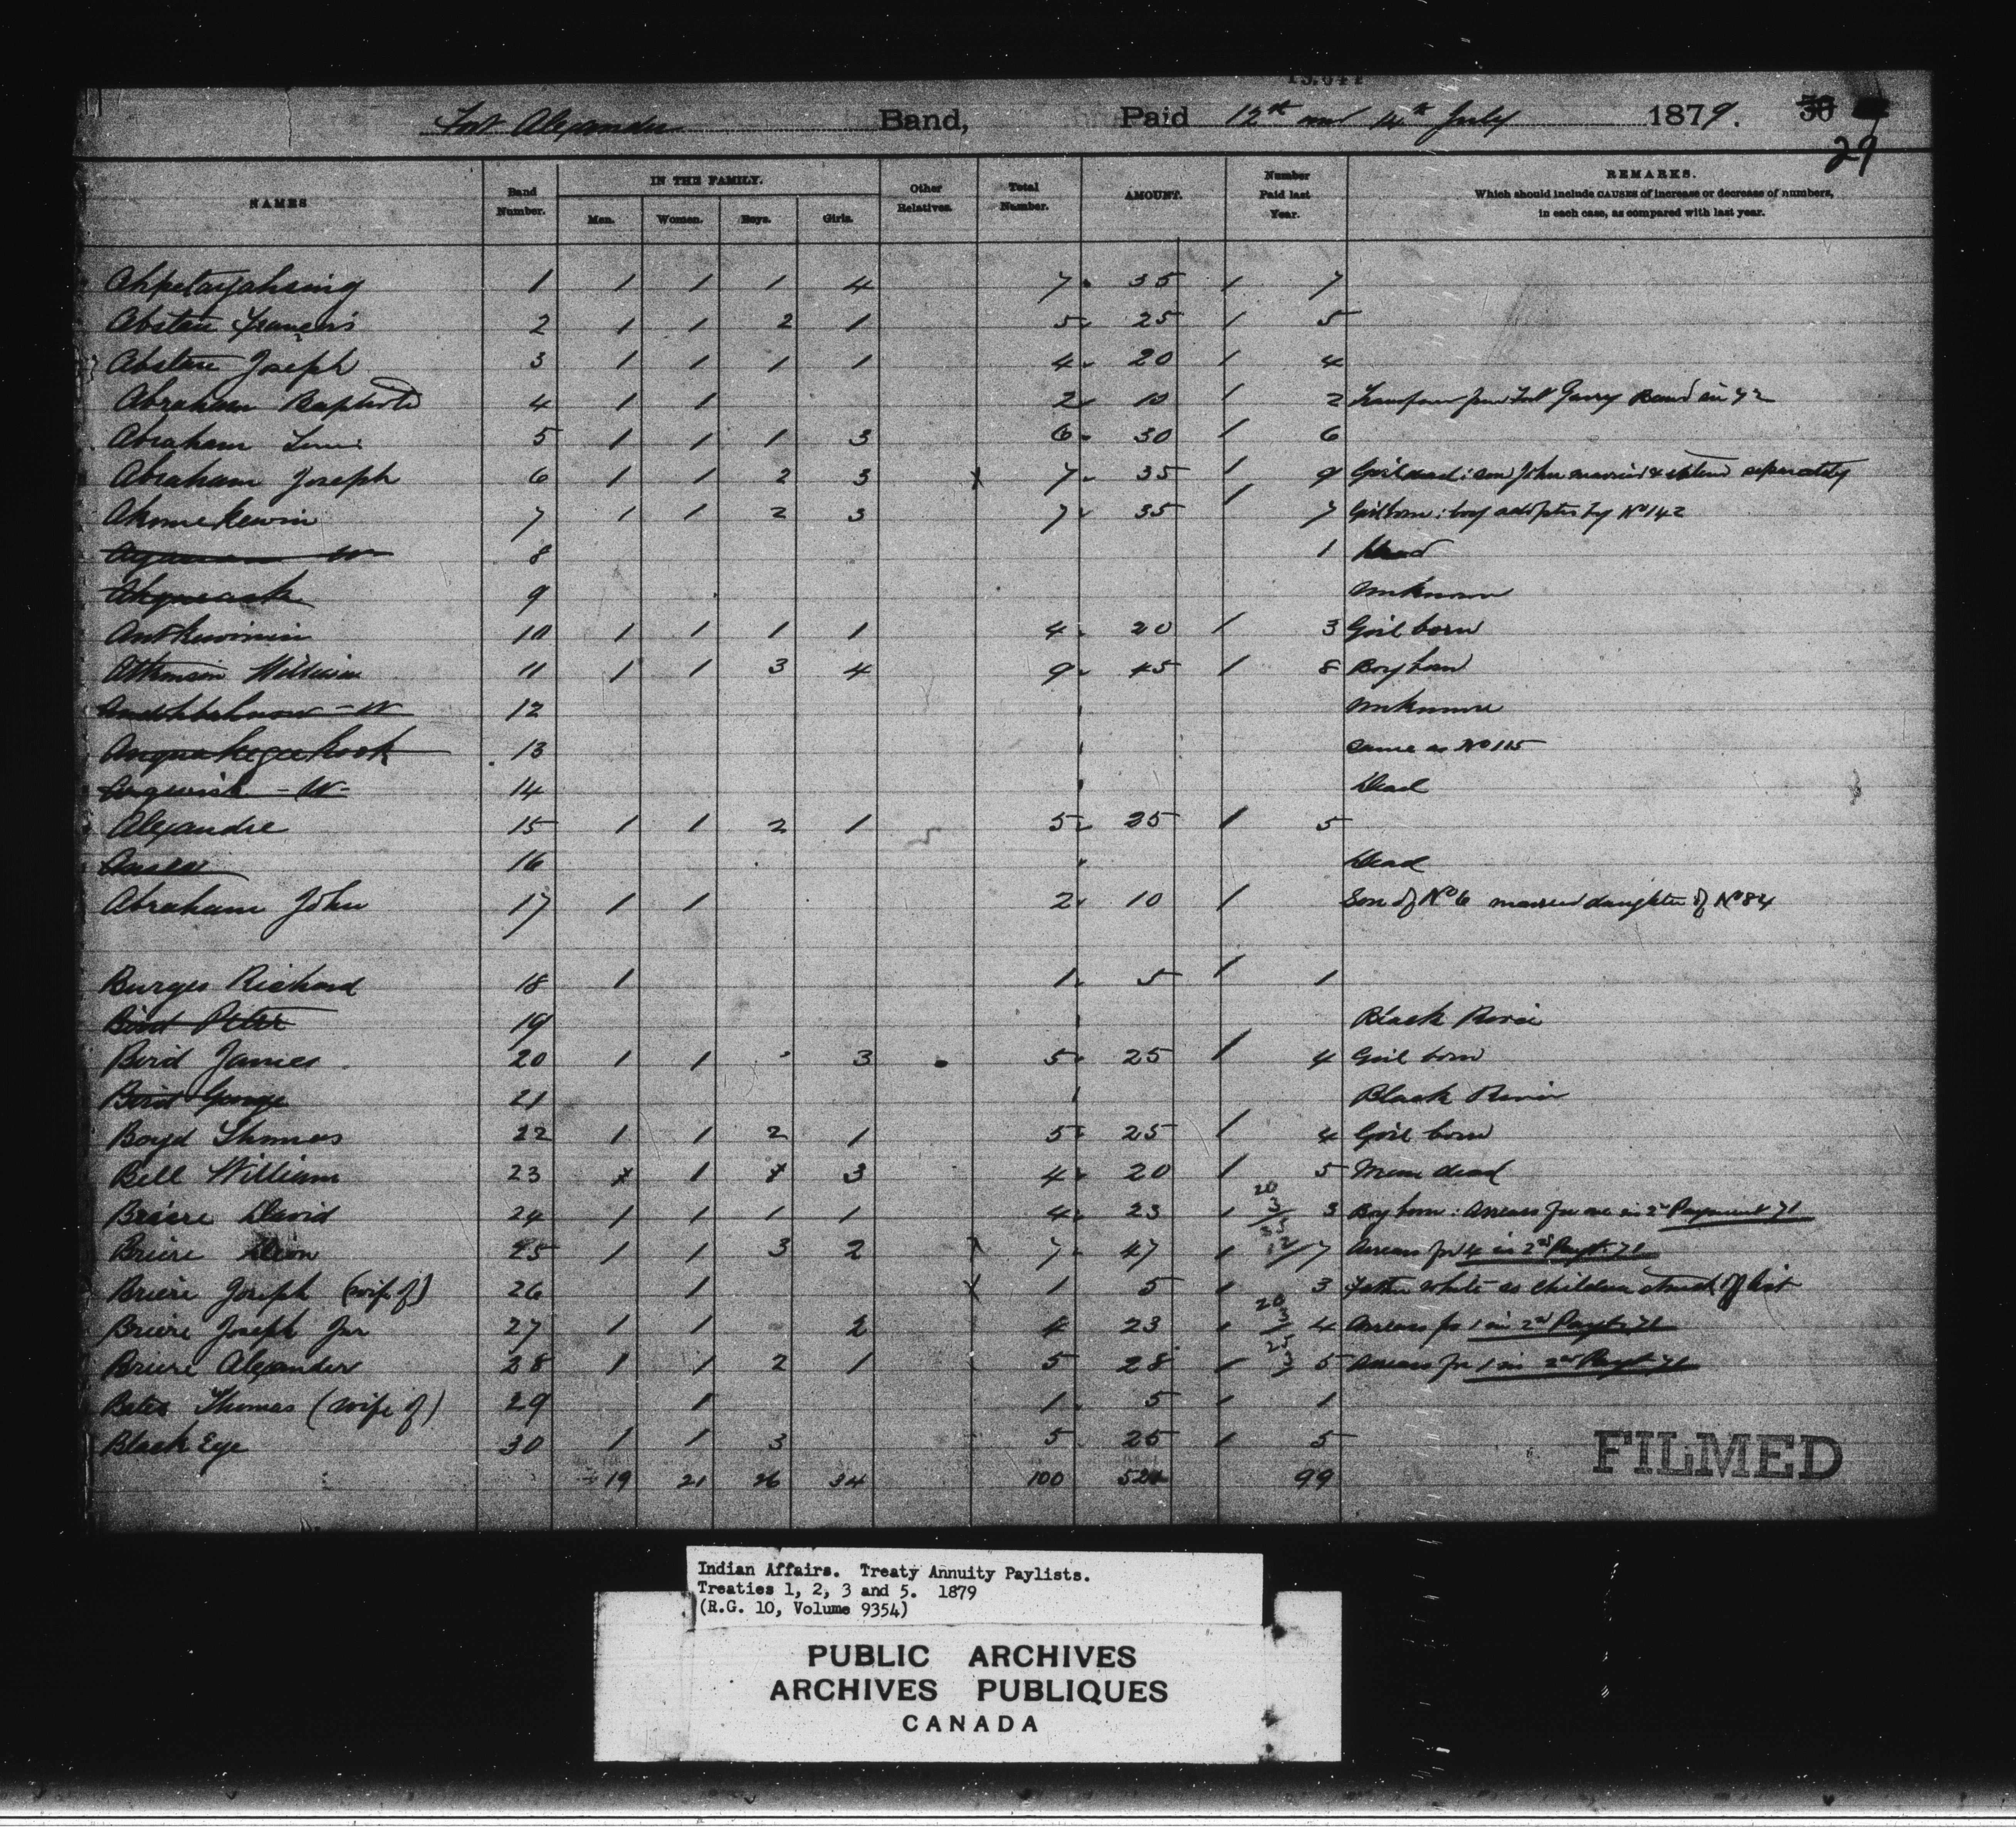 Fort Alexander Band, Paid 12th and 14th July 1879. 30
29
NAMES Band Number. IN THE FAMILY. Men. Women. Boys. Girls. Other Relatives. Total Number. AMOUNT. Number Paid last Year. REMARKS.
Which should include CAUSES of increase or decrease of numbers,
in each case, as compared with last year.
Ahpetayahsing 1 1 1 1 4 7 35 1 7
Abstau François 2 1 1 2 1 5 25 1 5
Abstau Joseph 3 1 1 1 1 4 20 1 4
Abraham Baptiste 4 1 1 2 10 1 2 Transfer from Fort Garry Band in 72
Abraham Louis 5 1 1 1 3 6 30 1 6
Abraham Joseph 6 1 1 2 3 x 7 35 1 9 Girl dead: son John married & separately
Akomekewin 7 1 1 2 3 7 35 1 7 Girl born: boy adopted by No 142
8 1 Dead
9 Unknown
10 1 1 1 1 4 20 1 3 Girl born
Atkinson William 11 1 1 3 4 9 45 1 8 Boy born
12 Unknown
13 Same as No 115
14 Dead
Alexandre 15 1 1 2 1 5 25 1 5
16 Dead
Abraham John 17 1 1 2 10 1 Son of No 6 married daughter of No 84
Burges Richard 18 1 1 5 1 1
Bird Peter 19 Black River
Bird James 20 1 1 3 5 25 1 4 Girl born
Bird George 21 Black River
Boyd Thomas 22 1 1 2 1 5 25 1 4 Girl born
Bell William 23 x 1 x 3 4 20 1 5 Man dead
Briere David 24 1 1 1 1 4 23 1 20 3 3 Boy born: Arrears for one in 2nd Payment 71
Briere 25 1 1 3 2 7 47 1 7 Arrears for 4 in 2nd Payt 71
Briere Joseph (wife of) 26 1 x 1 5 1 3 Father white so children struck off list
Briere Joseph Jnr 27 1 1 2 4 23 1 20 3 4 Arrears for 1 in 2nd Payt 71
Briere Alexander 28 1 1 2 1 5 28 1 25 3 5 Arrears for 1 in 2nd Payt 71
Thomas (wife of) 29 1 1 5 1 1
Black Eye 30 1 1 3 5 25 1 5
19 21 26 34 100 521 99
FILMED
Indian Affairs. Treaty Annuity Paylists.
Treaties 1, 2, 3 and 5. 1879
(R.G. 10, Volume 9354)
PUBLIC ARCHIVES
ARCHIVES PUBLIQUES
CANADA